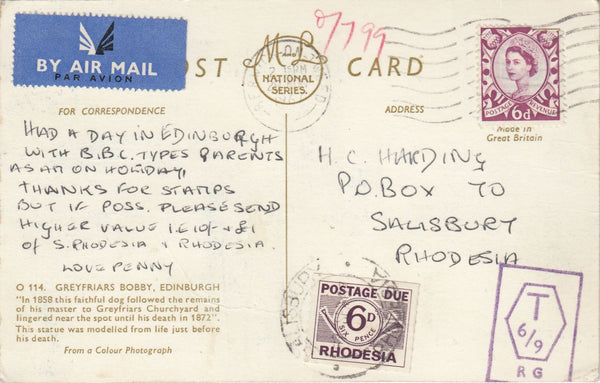 BY AIR MAIL
PAR AVION
POST CARD
NATIONAL
SERIES.
0/799
POSTAGE REVENUE
6D
FOR CORRESPONDENCE
ADDRESS
Made in
Great Britain
HAD A DAY IN EDINBURGH
WITH B.B.C. TYPES PARENTS
AS AM ON HOLIDAY.
THANKS FOR STAMPS
BUT IF POSS. PLEASE SEND
HIGHER VALUE I.E 10/- + £1
OF S. RHODESIA & RHODESIA.
LOVE PENNY
H. C. HARDING
P.O. BOX 70
SALISBURY
RHODESIA
O 114. GREYFRIARS BOBBY, EDINBURGH
"In 1858 this faithful dog followed the remains
of his master to Greyfriars Churchyard and
lingered near the spot until his death in 1872".
This statue was modelled from life just before
his death.
From a Colour Photograph
SALISBURY
POSTAGE DUE
6D
SIX PENCE
RHODESIA
T
6/9
RG